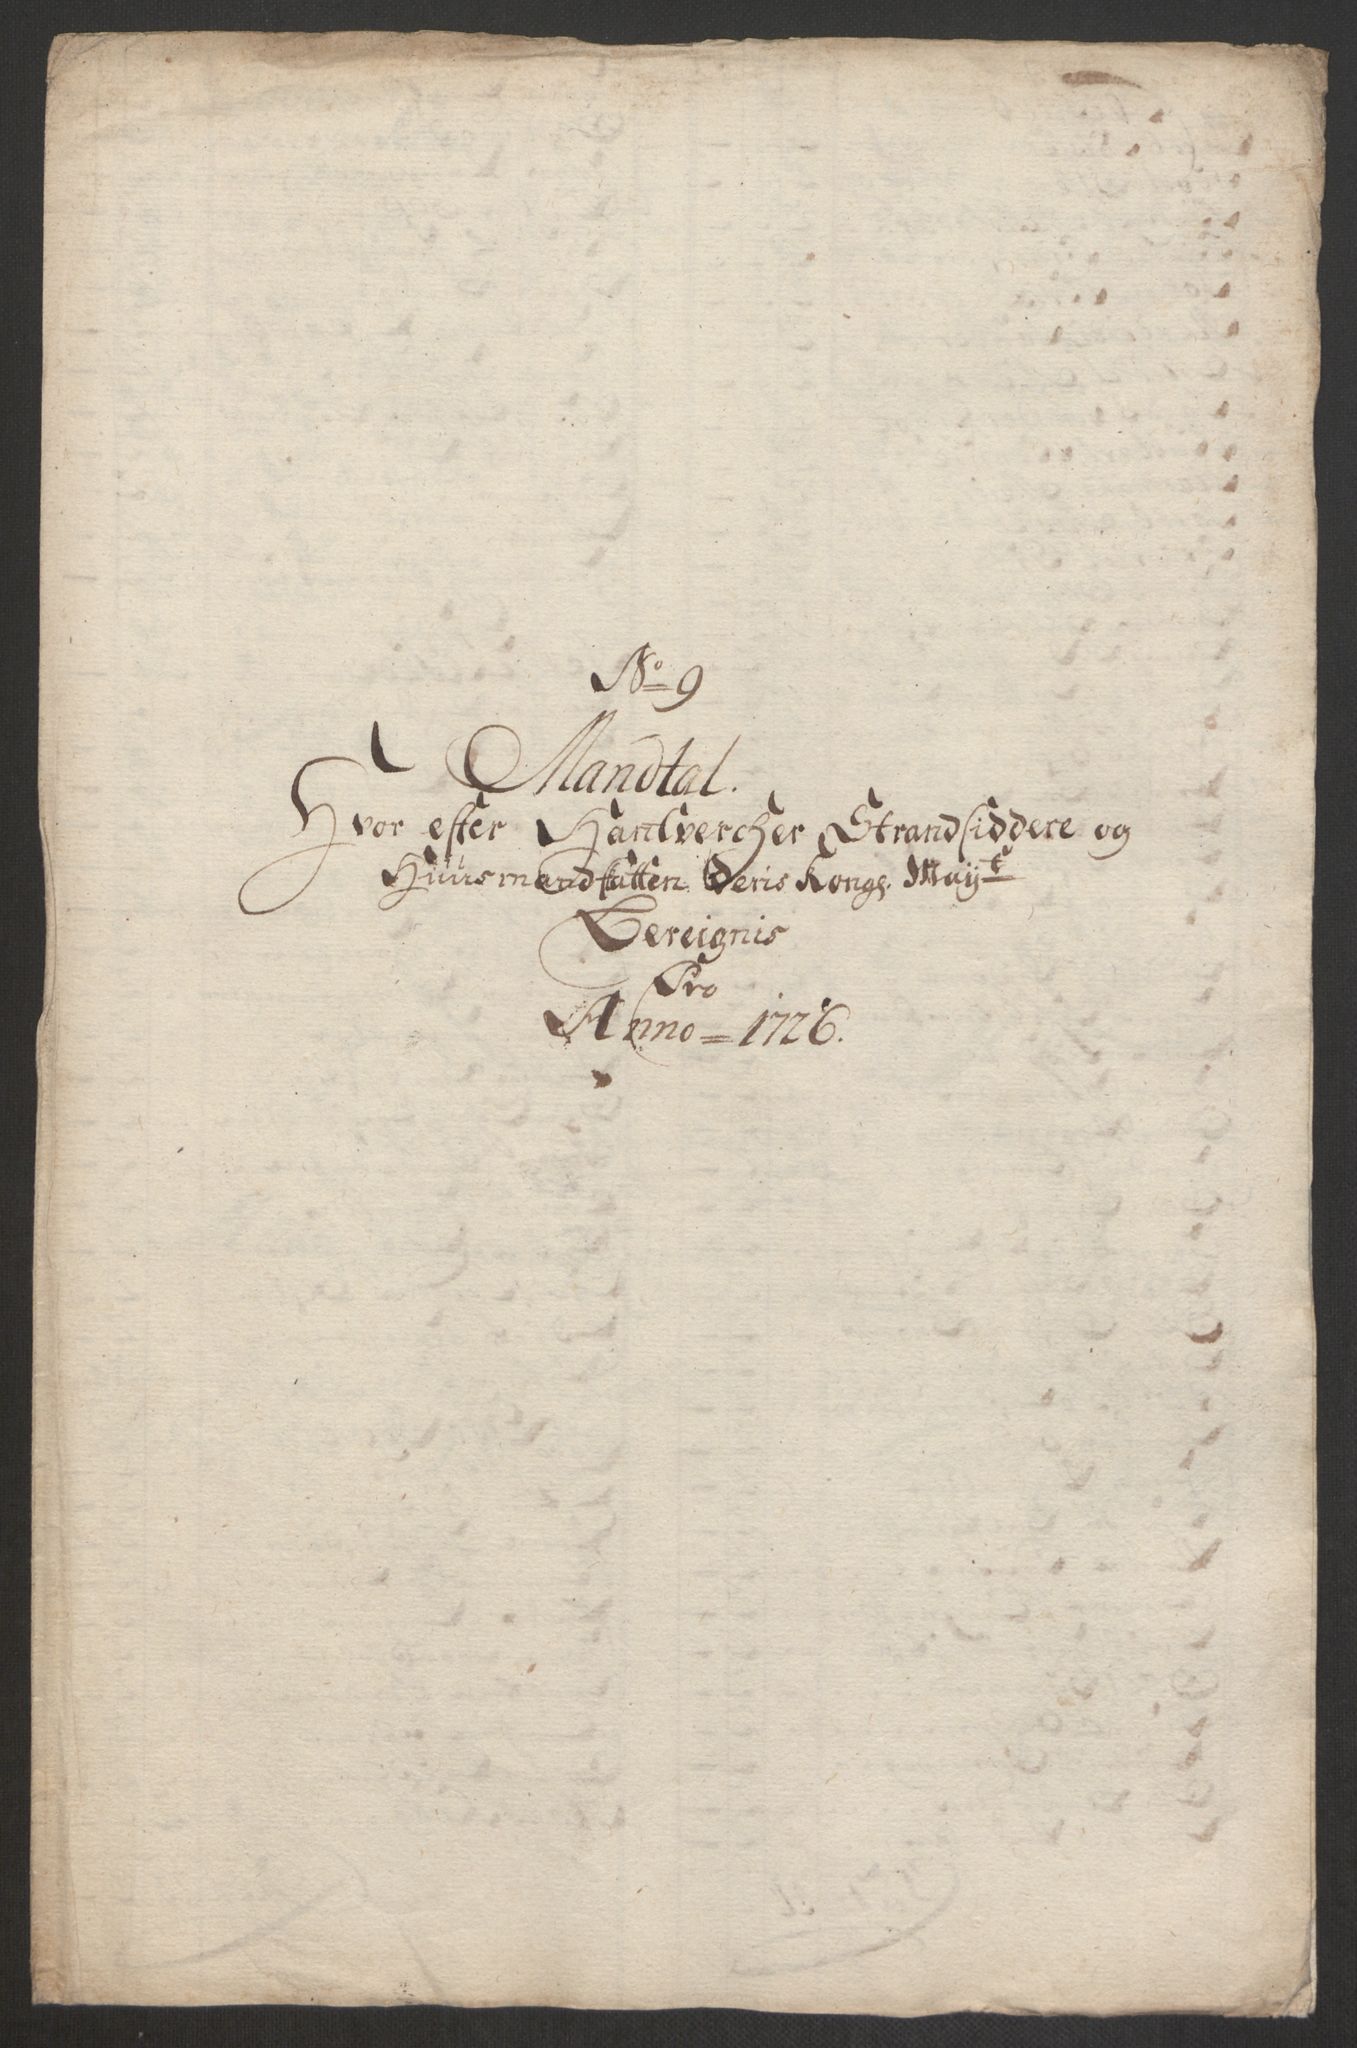 No 9
Mandtal.
Hvor effter Handvercher Strandsiddere og
Huusmandskatten Deris Kongl. Mayt
Bereignis
Pro
Anno = 1726.